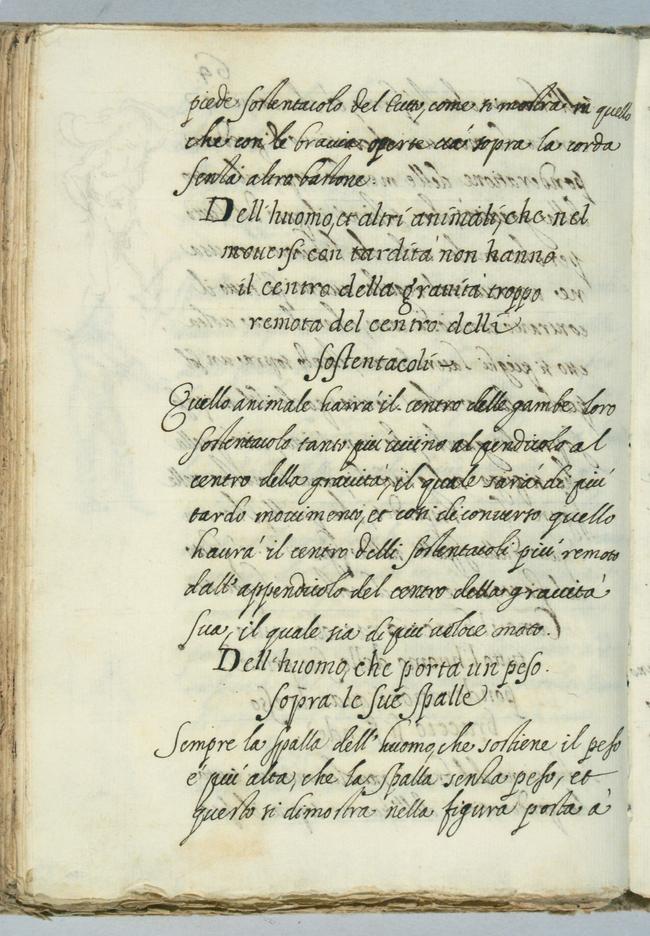 piede sostentacolo del tutto, come si mostra in quello
che con le braccia aperte uà sopra la corda
senza altro bastone
Dell'huomo, et altri animali, che nel
mouersi con tardità non hanno
il centro della grauità troppo
remota del centro delli
sostentacoli
Quello animale harrà il centro delle gambe loro
sostentacolo tanto più uicino al pendicolo al
centro della grauità, il quale sarà di più
tardo mouimento, et così di conuerso quello
haurà il centro delli sostentacoli più remoto
dall'appendicolo del centro della grauità
sua, il quale sia di più veloce moto.
Dell'huomo, che porta un peso
sopra le sue spalle
Sempre la spalla dell'huomo, che sostiene il peso
è più alta, che la spalla senza peso, et
questo si dimostra nella figura porta à